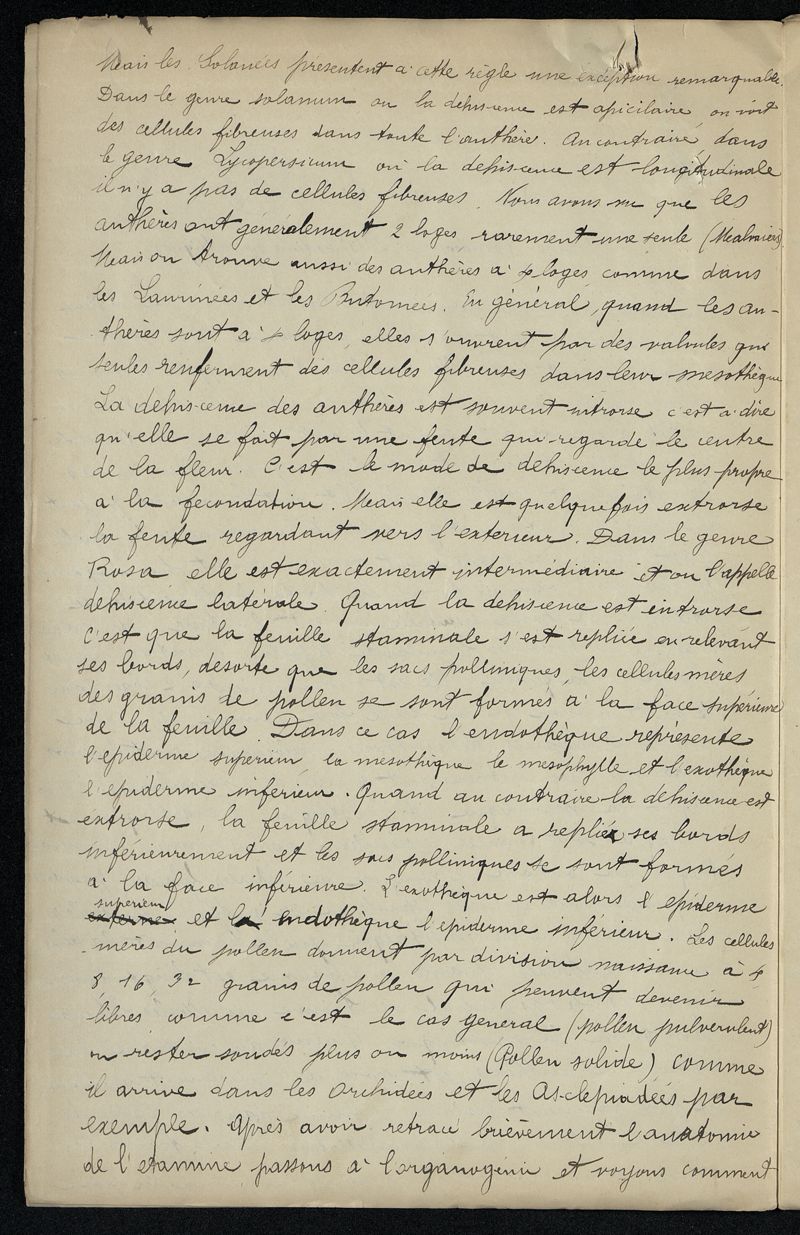 Mais les Solanées présentent à cette règle une exception remarquable.
Dans le genre solanum ou la dehiscence est apicilaire, on voit
des cellules fibreuses dans toute l'anthère. Au contraire, dans
le genre Lycopersicum où la dehiscence est longitudinale
il n'y a pas de cellules fibreuses. Nous avons vu que les
anthères ont généralement 2 loges rarement une seule (Malvacées).
Mais on trouve aussi des anthères à 4 loges comme dans
les Laurinées et les Butomees. En général, quand les an-
thères sont à 4 loges, elles s'ouvrent par des valvules qui
seules renferment des cellules fibreuses dans leur mesothèque
La dehiscence des anthères est souvent introrse c'est à dire
qu'elle se fait par une fente qui regarde le centre
de la fleur. C'est le mode de dehiscence le plus propre
à la fecondation. Mais elle est quelquefois extrorse
la fente regardant vers l'exterieur. Dans le genre
Rosa, elle est exactement intermédiaire et on l'appelle
dehiscence latérale. Quand la dehiscence est introrse
c'est que la feuille staminale s'est repliée en relevant
ses bords, desorte que les sacs polliniques, les cellules mères
des grains de pollen se sont formés à la face supérieure
de la feuille. Dans ce cas l'endothèque représente
l'epiderme superieur, la mesothèque le mesophylle et l'exothèque
l'epiderme inferieur. Quand au contraire la dehiscence est
extrorse, la feuille staminale a replié ses bords
inférieurement et les sacs polliniques se sont formés
à la face inférieure. L'exothèque est alors l'epiderme
superieur
externe et la endothèque l'epiderme inférieur. Les cellules
mères du pollen donnent par division naissance à 4
8, 16, 32 grains de pollen qui peuvent devenir
libres comme c'est le cas general (pollen pulverulent)
ou rester soudés plus ou moins (Pollen solide) comme
il arrive dans les Orchidées et les Asclepiadées par
exemple. Après avoir retracé brièvement l'anatomie
de l'etamine passons à l'organogénie et voyons comment